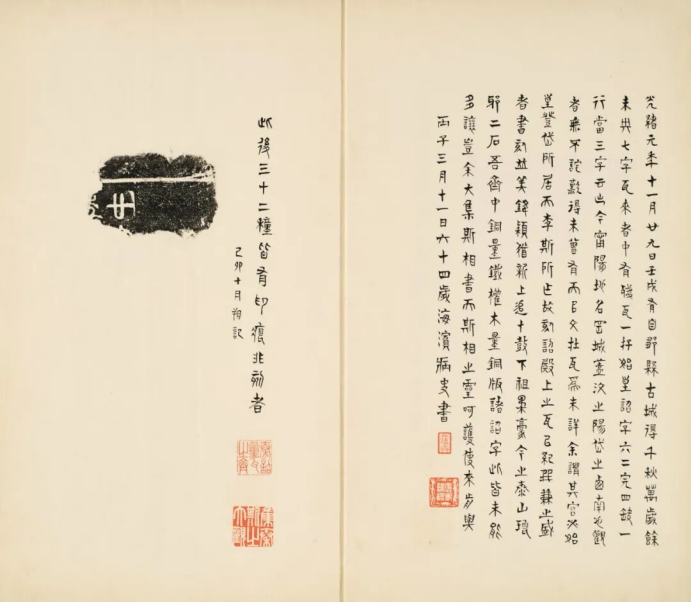 光緒元年十一月廿九日壬戌有自鄒縣古城得千秋萬歲餘
未央七字瓦來者中有殘瓦一始皇詔字六二完四缺一
行當三字云出今甯陽地名城蓋汶之陽岱之西南也觀
者無不詫歎得未曾有而以文在瓦為未詳余謂其宮必始
皇登岱所居而李斯所故刻詔殿上之瓦以紀兼之盛
者書刻並美鋒穎猶新上追十鼓下祖果豪今之泰山琅
邪二石吾齋中銅量鐵權木量銅版諸詔字此皆未能
多讓豈余大集斯相書而斯相之靈呵護使來歸與
丙子三月十一日六十四歲海濱病史書
此後三十二種皆有印痕非刻者
己卯十月朔記